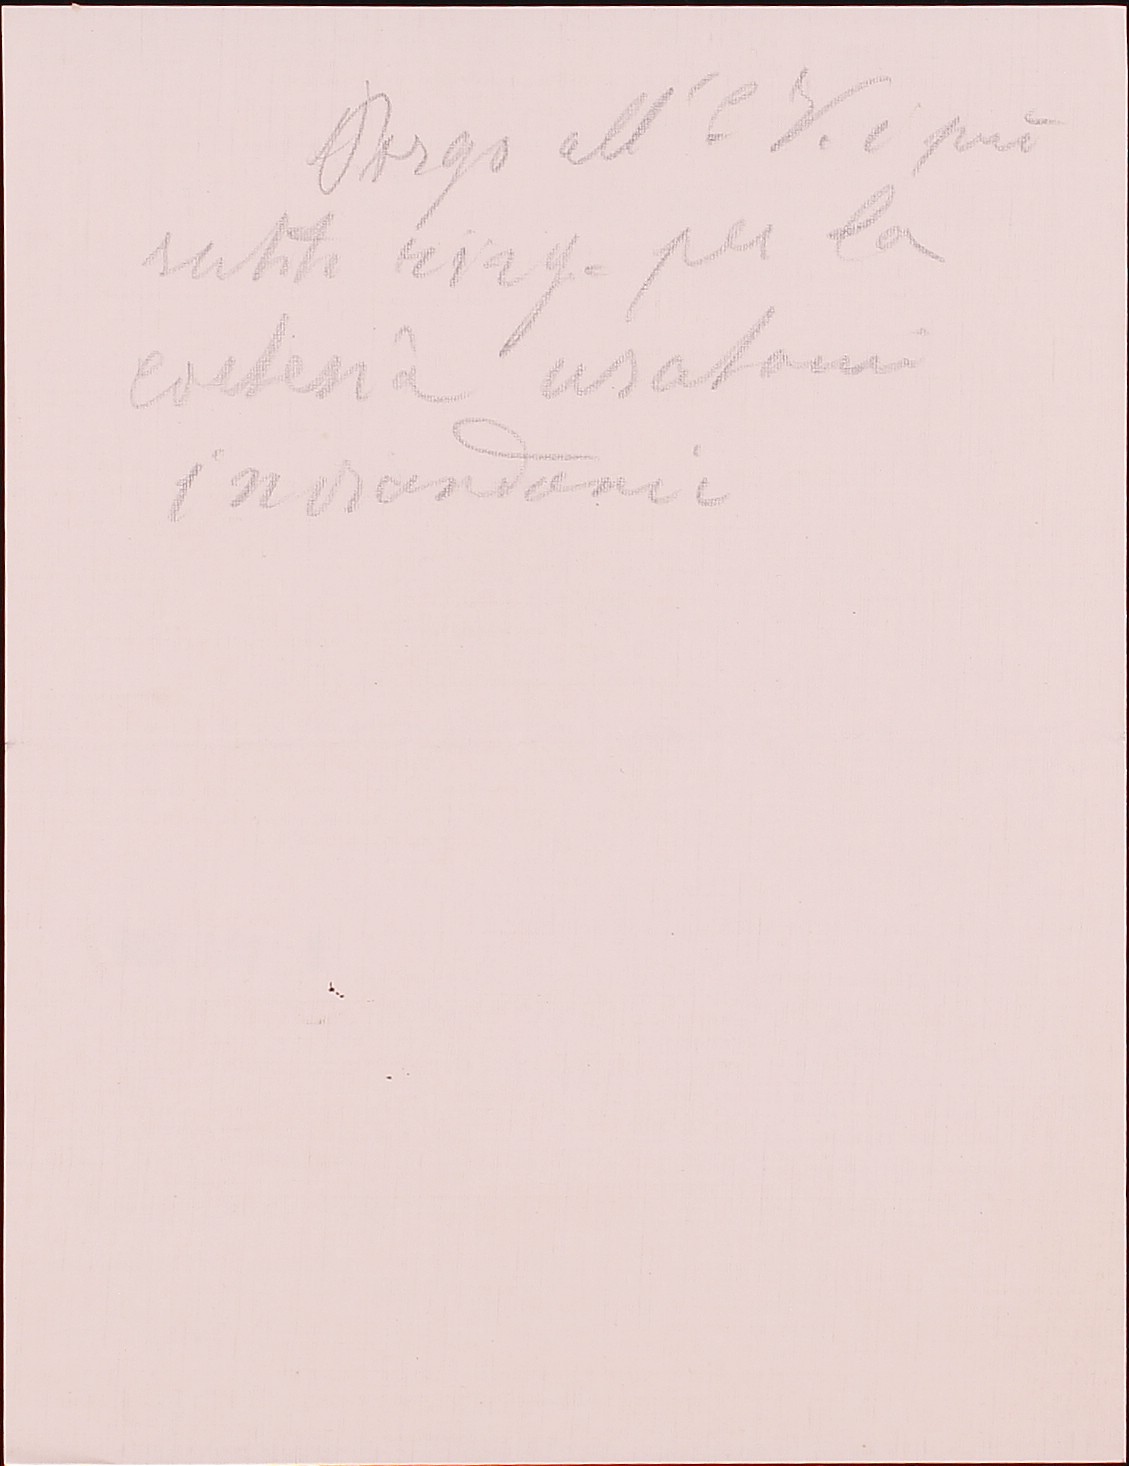 Porgo all' E V. i più
sentiti ring. per la
cortesia usatami